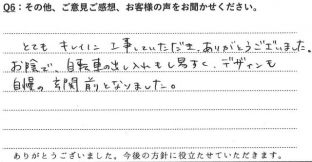 Q6：その他、ご意見ご感想、お客様の声をお聞かせください。
とても キレイに 工事していただき、ありがとうございました。
お陰で、自転車の出し入れもし易すく、デザインも
自慢の玄関前となりました。
ありがとうございました。今後の方針に役立たせていただきます。